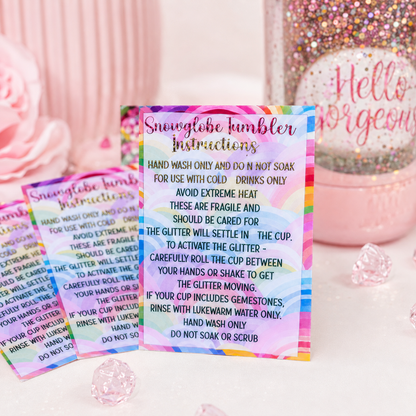 Snowglobe Tumbler
Instructions
HAND WASH ONLY AND DO N NOT SOAK
FOR USE WITH COLD DRINKS ONLY
AVOID EXTREME HEAT
THESE ARE FRAGILE AND
SHOULD BE CARED FOR
THE GLITTER WILL SETTLE IN THE CUP.
TO ACTIVATE THE GLITTER -
CAREFULLY ROLL THE CUP BETWEEN
YOUR HANDS OR SHAKE TO GET
THE GLITTER MOVING.
IF YOUR CUP INCLUDES GEMESTONES,
RINSE WITH LUKEWARM WATER ONLY.
HAND WASH ONLY
DO NOT SOAK OR SCRUB
Hello
gorgeous
Snowglobe Tumbler
Instructions
HAND WASH ONLY AND DO
FOR USE WITH COLD
AVOID EXTREME
THESE ARE FRAGILE
SHOULD BE CARED
THE GLITTER WILL SETTLE
TO ACTIVATE THE
CAREFULLY ROLL THE
YOUR HANDS OR
THE GLITTER
IF YOUR CUP INCLUDES
RINSE WITH LUKEWARM
HAND WASH
DO NOT SOAK